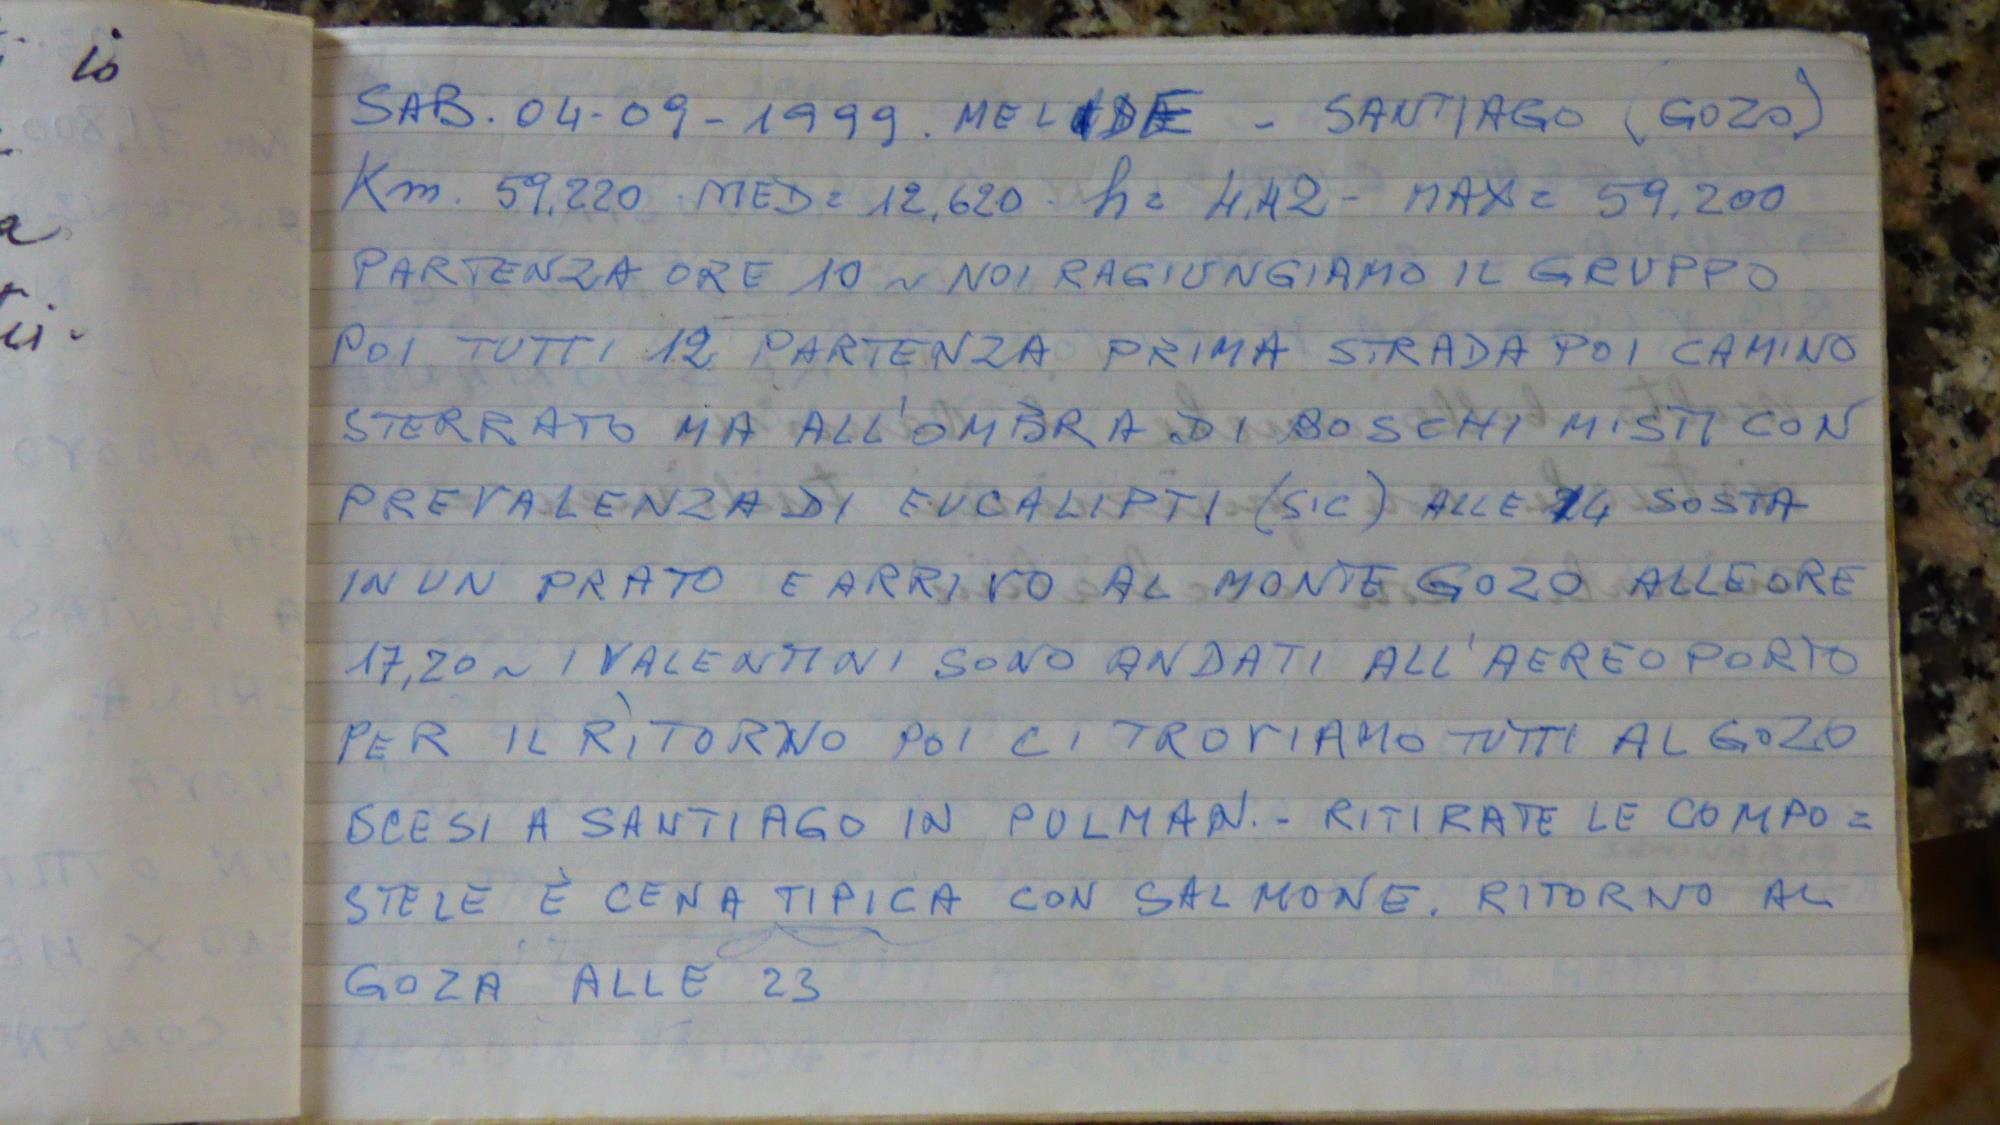 io
a
SAB. 04-09-1999. MELIDE - SANTIAGO (GOZO)
Km. 59,220 . MED= 12,620 - h= 4,42 - MAX= 59,200
PARTENZA ORE 10 ~ NOI RAGIUNGIAMO IL GRUPPO
POI TUTTI 12 PARTENZA PRIMA STRADA POI CAMINO
STERRATO MA ALL'OMBRA DI BOSCHI MISTI CON
PREVALENZA DI EUCALIPTI (SIC) ALLE 14 SOSTA
IN UN PRATO E ARRIVO AL MONTE GOZO ALLE ORE
17,20 ~ I VALENTINI SONO ANDATI ALL'AEREOPORTO
PER IL RITORNO POI CI TROVIAMO TUTTI AL GOZO
SCESI A SANTIAGO IN PULMAN. - RITIRATE LE COMPO=
STELE È CENA TIPICA CON SALMONE. RITORNO AL
GOZA ALLE 23